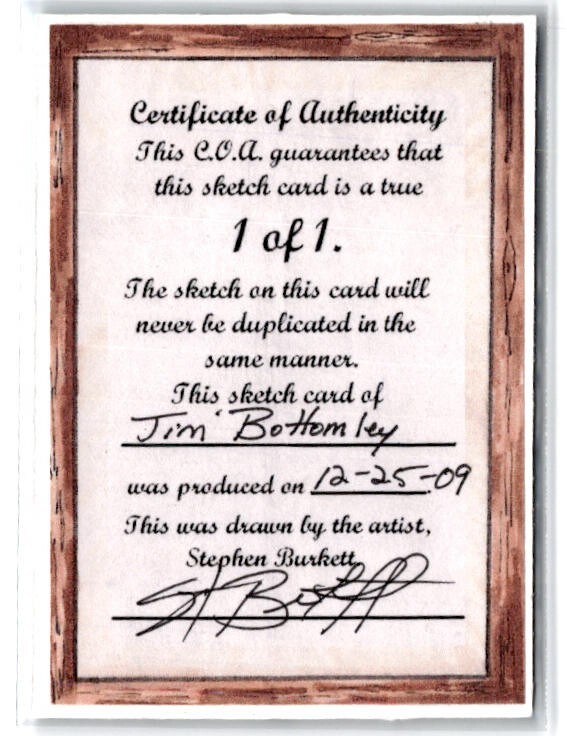 Certificate of Authenticity
This C.O.A. guarantees that
this sketch card is a true
1 of 1.
The sketch on this card will
never be duplicated in the
same manner.
This sketch card of
Jim Bottomley
was produced on 12-25-09
This was drawn by the artist,
Stephen Burkett